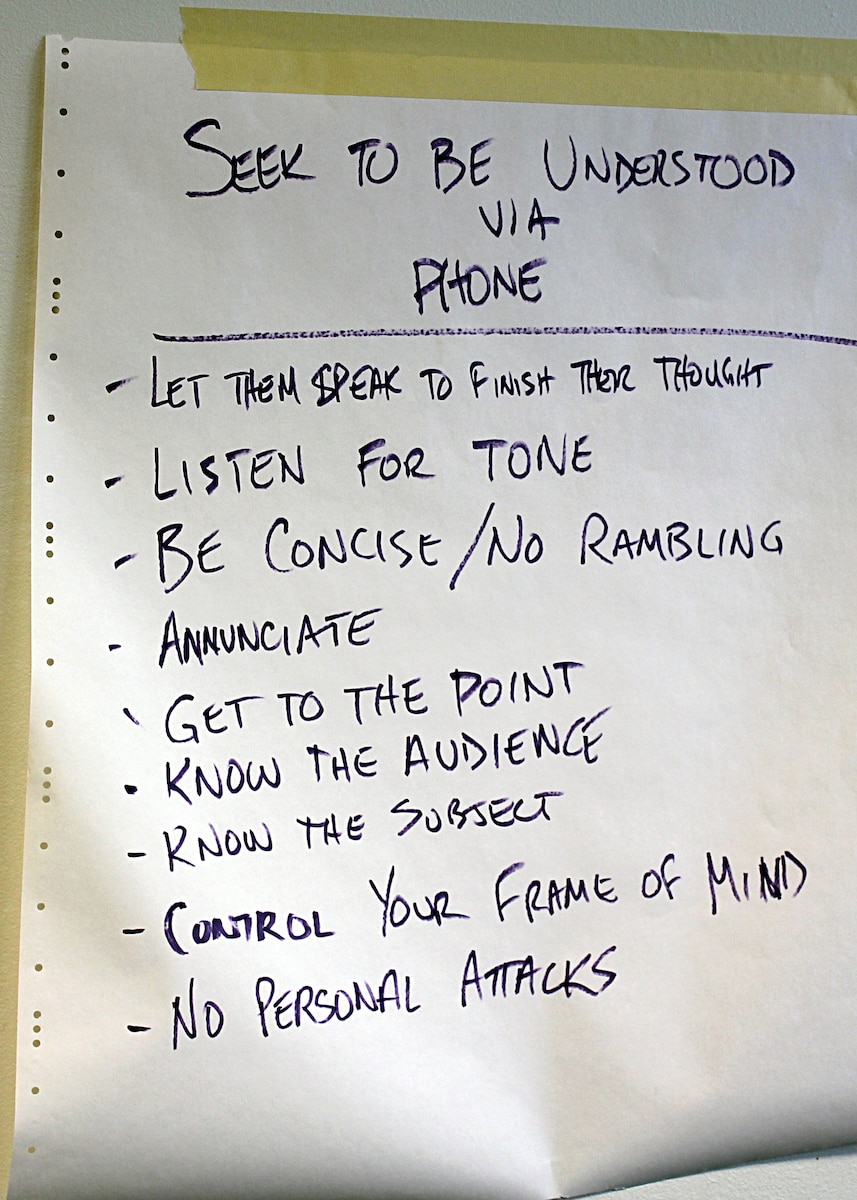 SEEK TO BE UNDERSTOOD
VIA
PHONE
- LET THEM SPEAK TO FINISH THEIR THOUGHT
- LISTEN FOR TONE
- BE CONCISE/NO RAMBLING
- ANNUNCIATE
- GET TO THE POINT
- KNOW THE AUDIENCE
- KNOW THE SUBJECT
- CONTROL YOUR FRAME OF MIND
- NO PERSONAL ATTACKS